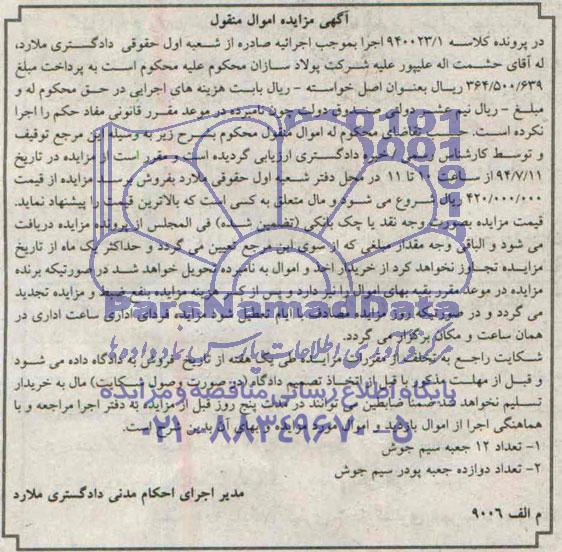 آگهی مزایده اموال منقول
در پرونده کلاسه ۹۴۰۰۲۳/۱ اجرا بموجب اجرائیه صادره از شعبه اول حقوقی دادگستری ملارد،
له آقای حشمت اله علیپور علیه شرکت پولاد سازان محکوم علیه محکوم است به پرداخت مبلغ
۳۶۴/۵۰۰/۶۳۹ ریـال بعنوان اصل خواسته – ریال بابت هزینه های اجرایی در حق محکوم له و
مبلغ – ریال نیم عشر دولتی صندوق دولت چون نامبرده در موعد مقرر قانونی مفاد حکم را اجرا
نکرده است. حسب تقاضای محکوم له اموال منقول محکوم بشرح زیر به وسیله این مرجع توقیف
و توسط کارشناس رسمی خبره دادگستری ارزیابی گردیده است و مقرر است از مزایده در تاریخ
۹۴/۷/۱۱ از ساعت ۱۰ تا ۱۱ در محل دفتر شعبه اول حقوقی ملارد بفروش برسد مزایده از قیمت
۴۲۰/۰۰۰/۰۰۰ ریال شروع می شود و مال متعلق به کسی است که بالاترین قیمت را پیشنهاد نماید.
قیمت مزایده بصورت وجه نقد یا چک بانکی (تضمین شده) فی المجلس از برونده مزایده دریافت
می شود و الباقی وجه مقدار مبلغی که از سوی این مرجع تعیین می گردد و حداکثر یک ماه از تاریخ
مزایـده تجاوز نخواهد کرد از خریدار اخذ و اموال به نامبرده تحویل خواهد شد در صورتیکه برنده
مزایده در موعد مقرر بقیه بهای اموال را نپردازد و پس از کسر هزینه مزایده بنفع ضبط و مزایده تجدید
می گردد و در صورتیکه روز مزایده مصادف با ایام تعطیل شود مزایده فردای اداری ساعت اداری در
همان ساعت و مکان برگزار می گردد.
شکایت راجع به تخلف از مقررات مزایـده ظرف یک هفته از تاریخ فروش به دادگاه داده می شود
و قبل از مهلت مذکور یا قبل از اتخاذ تصمیم دادگاه (در صورت وصول شکایت) مال به خریدار
تسلیم نخواهد شد ضمناً متقاضیان می توانند در مدت پنج روز قبل از مزایده به دفتر اجرا مراجعه و با
هماهنگی اجرا از اموال بازدید و اموال مورد مزایده و بهای آن بدین شرح است.
۱- تعداد ۱۲ جعبه سیم جوش
۲- تعداد دوازده جعبه پودر سیم جوش
مدیر اجرای احکام مدنی دادگستری ملارد
م الف ۹۰۰۶
ParsNamadData
پایگاه اطلاع رسانی مناقصه و مزایده
۰۲۱-۸۸۳۴۹۶۷۰-۵